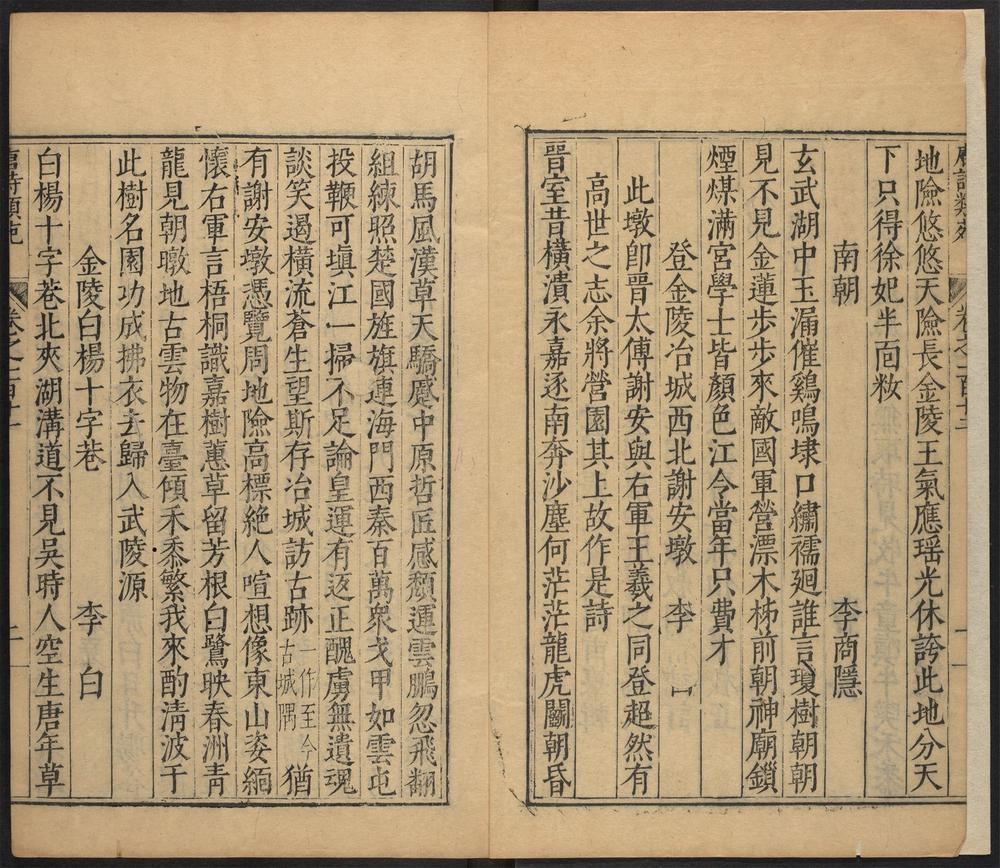 地險悠悠天險長金陵王氣應瑤光休誇此地分天
下只得徐妃半面粧
南朝 李商隱
玄武湖中玉漏催鷄鳴埭口繡襦廻誰言瓊樹朝朝
見不見金蓮步步來敵國軍營漂木柹前朝神廟鎖
煙煤滿宮學士皆顏色江令當年只費才
登金陵冶城西北謝安墩 李
此墩卽晉太傅謝安與右軍王羲之同登超然有
高世之志余將營園其上故作是詩
晉室昔橫潰永嘉逐南奔沙塵何茫茫龍虎鬬朝昏
胡馬風漢草天驕蹙中原哲匠感頹運雲鵬忽飛翻
組練照楚國旌旗連海門西秦百萬衆戈甲如雲屯
投鞭可塡江一掃不足論皇運有返正醜虜無遺魂
談笑遏橫流蒼生望斯存冶城訪古跡一作至今古城隅猶
有謝安墩憑覽周地險高標絶人喧想像東山姿緬
懷右軍言梧桐識嘉樹蕙草留芳根白鷺映春洲靑
龍見朝暾地古雲物在臺傾禾黍繁我來酌淸波于
此樹名園功成拂衣去歸入武陵源
金陵白楊十字巷 李白
白楊十字巷北夾湖溝道不見吳時人空生唐年草